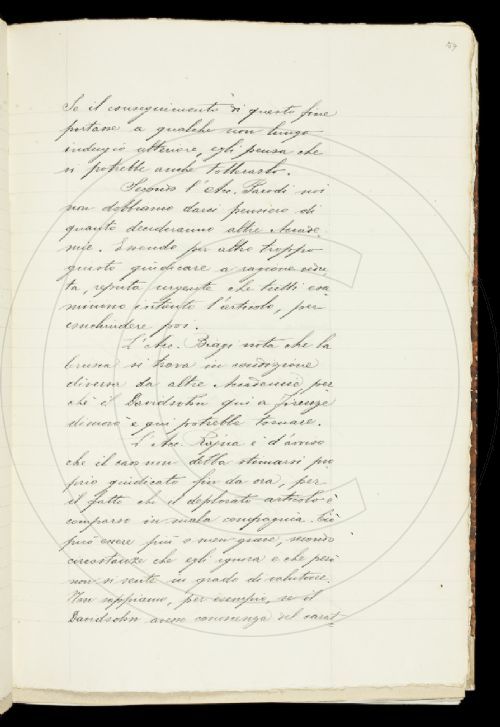 57
Se il conseguimento di questo fine
portasse a qualche non lungo
indugio ulteriore, egli pensa che
si potrebbe anche tollerarlo.
Secondo l'Acc. Parodi noi
non dobbiamo darci pensiero di
quanto decideranno altre Accade-
mie. Essendo per altro troppo
giusto giudicare a ragione vedu-
ta, reputa urgente che tutti esa-
minino intanto l'articolo, per
conchiudere poi.
L'Acc. Biagi nota che la
Crusca si trova in condizione
diversa da altre Accademie per
chè il Davidsohn qui a Firenze
dimorò e qui potrebbe tornare.
L'Acc. Rajna è d'avviso
che il caso non debba stimarsi pro
prio giudicato fin da ora, per
il fatto che il deplorato articolo è
comparso in mala compagnia. Ciò
può essere più o men grave, secondo
circostanze che egli ignora e che però
non si sente in grado di valutare.
Non sappiamo, per esempio, se il
Davidsohn avesse conoscenza del carat-